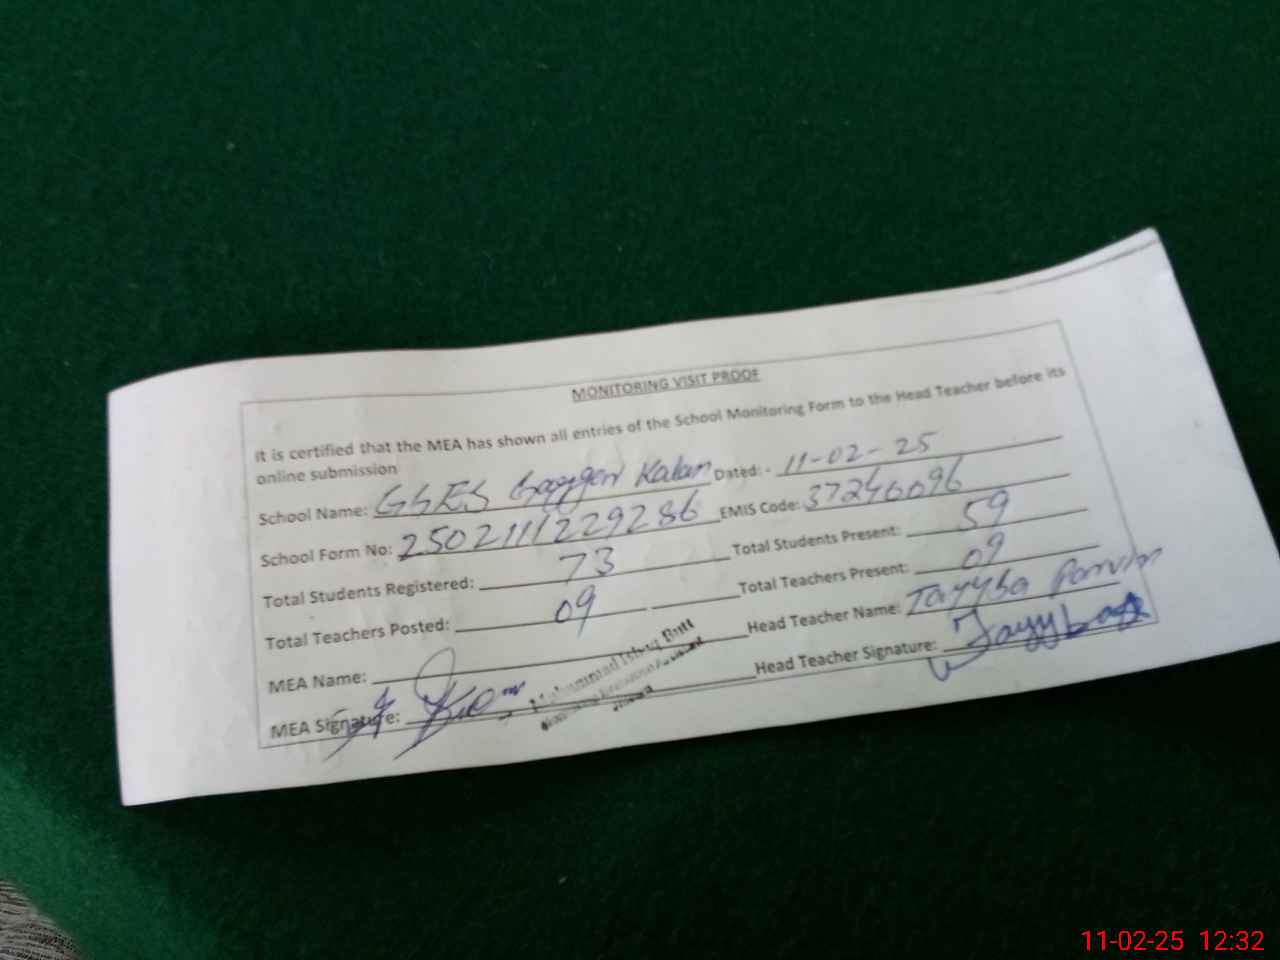 MONITORING VISIT PROOF
It is certified that the MEA has shown all entries of the School Monitoring Form to the Head Teacher before its
online submission
School Name: GGES Kalan Dated: - 11-02-25
School Form No: 2502111229286 EMIS Code: 37246096
Total Students Registered: 73 Total Students Present: 59
Total Teachers Posted: 09 Total Teachers Present: 09
MEA Name: Muhammad Ishaq Butt Head Teacher Name: Tayyba Parvin
MEA Signature: Head Teacher Signature: Tayyba
11-02-25 12:32